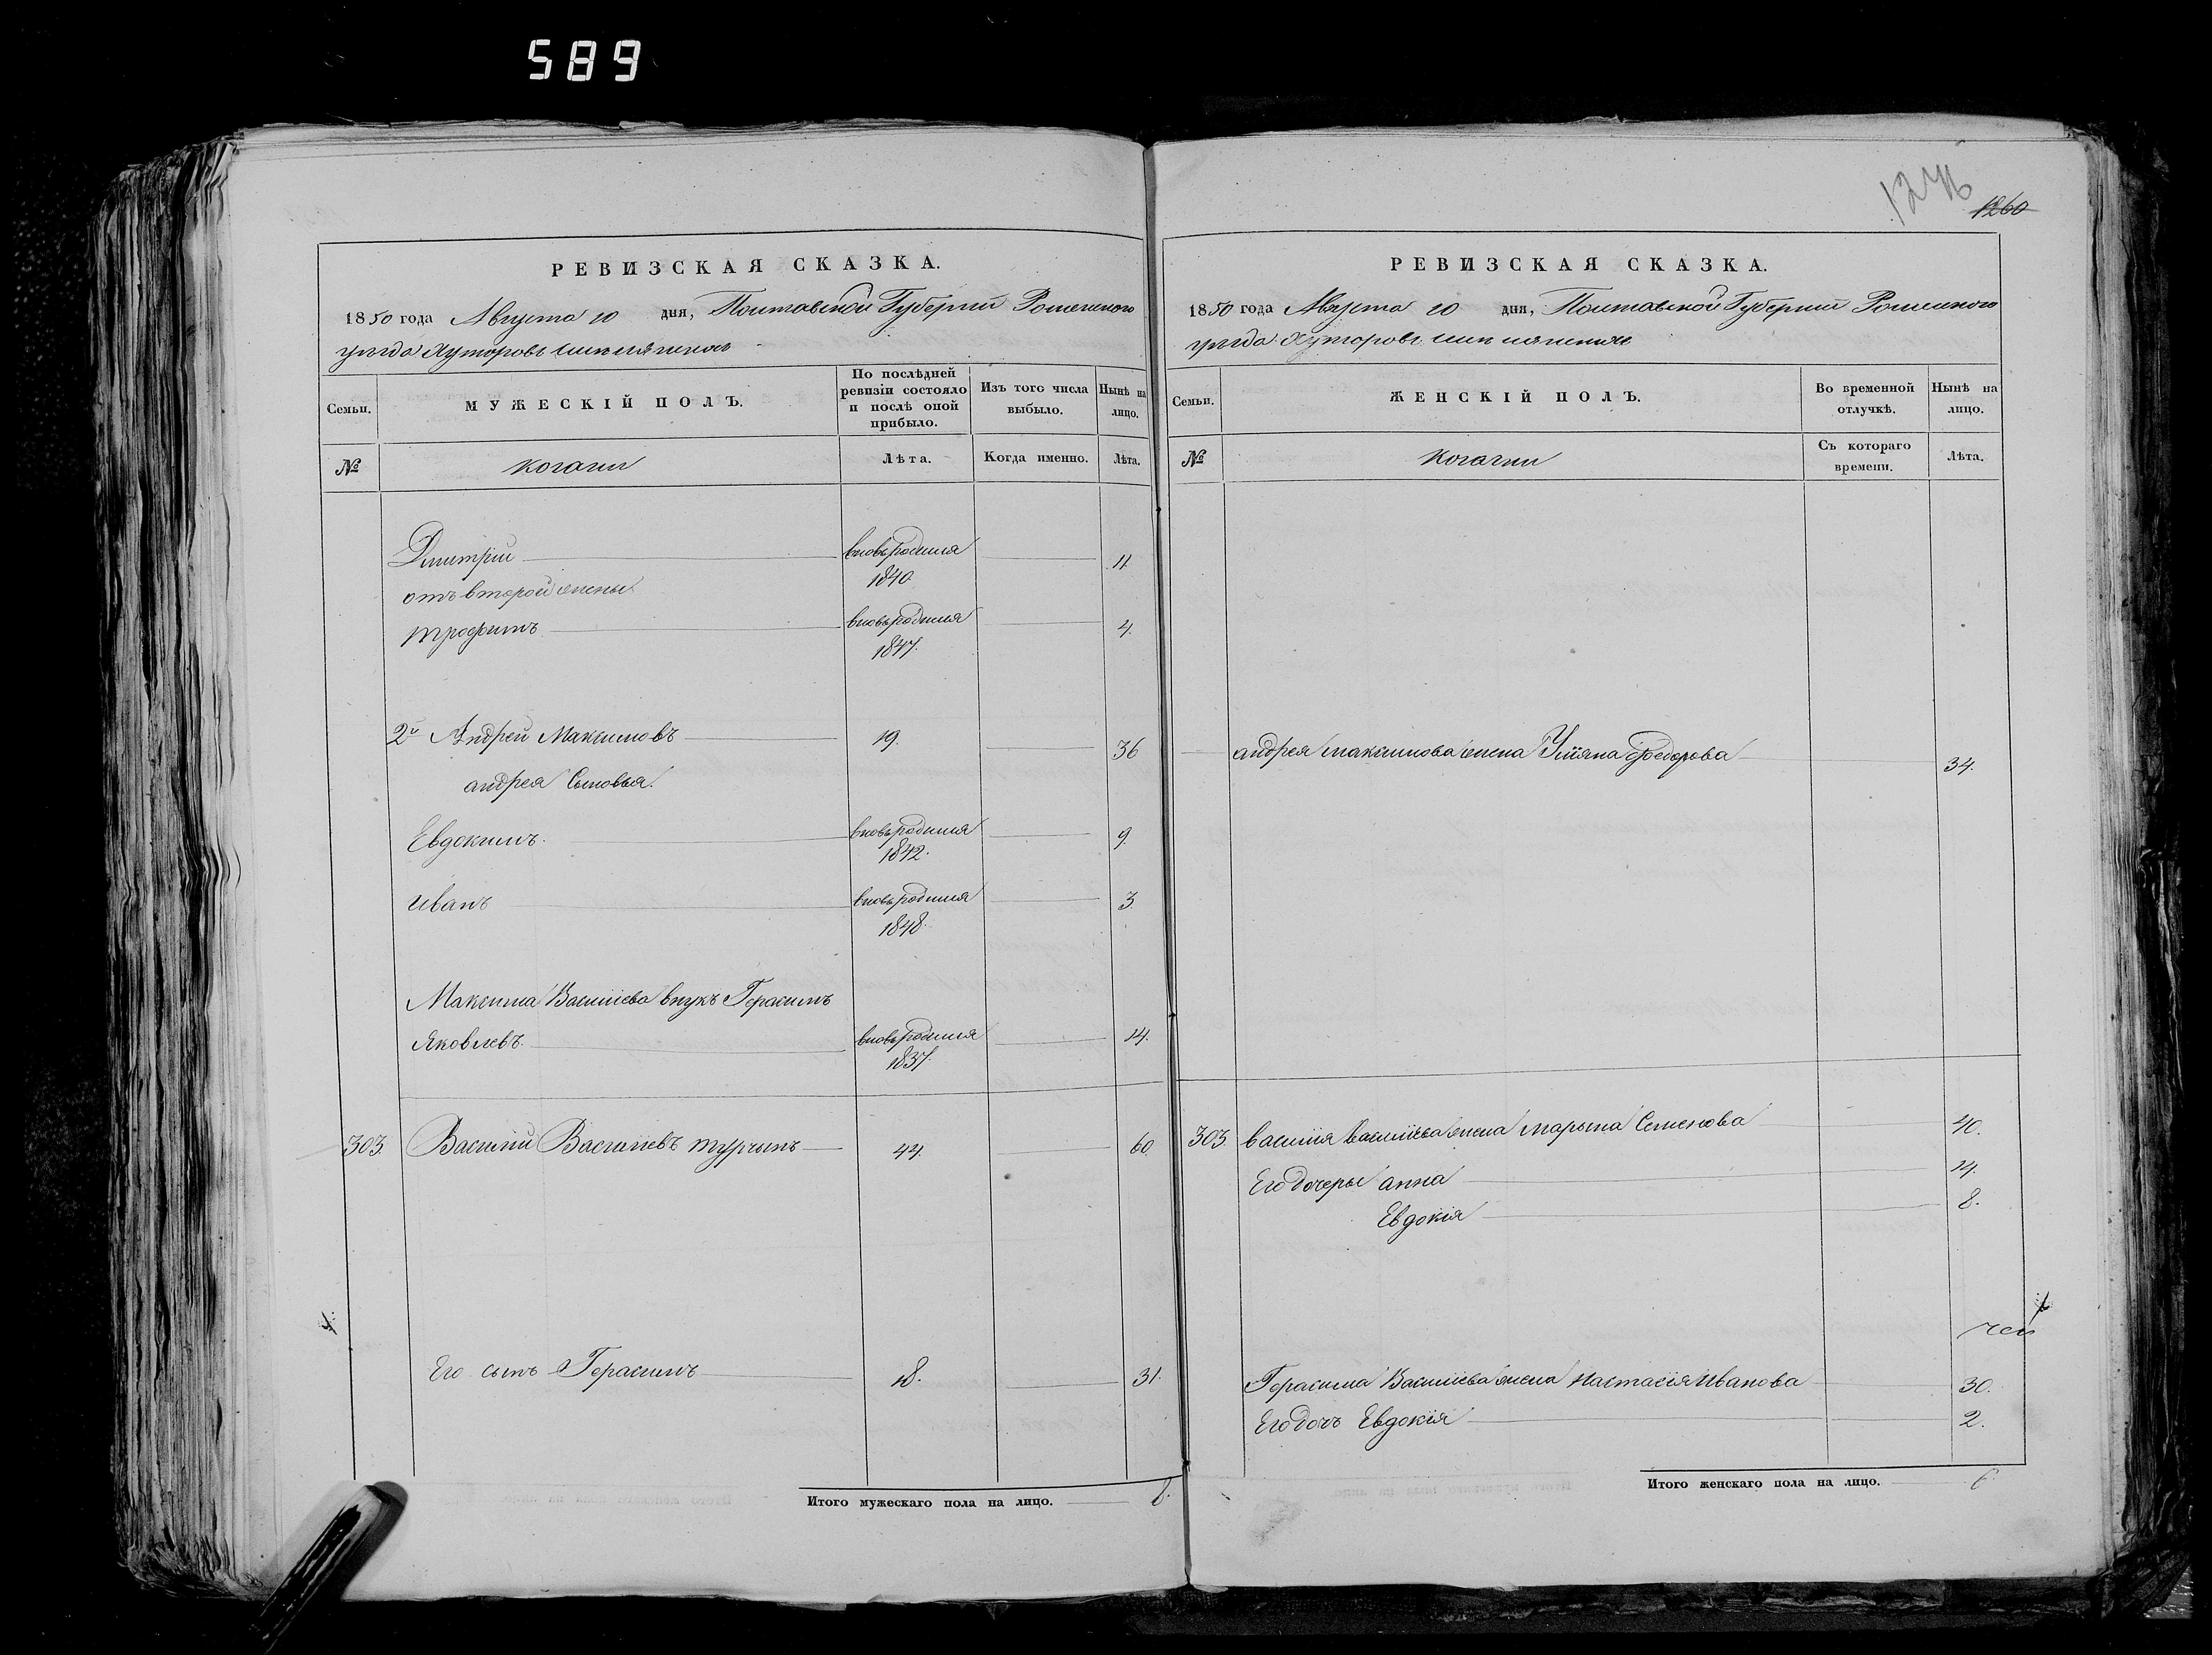 589
1246
1260
РЕВИЗСКАЯ СКАЗКА.
1850 года Августа 10 дня, Полтавской Губерніи Роменского
уезда Хуторовъ
Семьи.
МУЖЕСКІЙ ПОЛЪ.
По послѣдней
ревизіи состояло
и послѣ оной
прибыло.
Изъ того числа
выбыло.
Нынѣ на
лицо.
№
козачіи
Лѣта.
Когда именно.
Лѣта.
Дмитрій вновьродился 11
1840
отъ второй жены
трофимъ вновьродился 4.
1847.
2й Андрей Максимовъ 19. 36
андрея Сыновья.
Евдокимъ. вновьродился 9.
1842.
иванъ вновьродился 3.
1848.
Максима Василіева внукъ Герасимъ
Яковлевъ. вновьродился 14.
1837.
303. Василій Василіевъ турчынъ 44. 60
Его сынъ Герасимъ 18. 31.
Итого мужескаго пола на лицо. 8.
РЕВИЗСКАЯ СКАЗКА.
1850 года Августа 10 дня, Полтавской Губерніи Роменского
уезда Хуторовъ
Семьи.
ЖЕНСКІЙ ПОЛЪ.
Во временной
отлучкѣ.
Нынѣ на
лицо.
№
Козачіи
Съ котораго
времени.
Лѣта.
андрея максимова жена Уліяна Федорова 34.
303. василія василіева жена марына Семенова 40.
Его дочеры анна 14.
Евдокія 8.
Герасима Василіева жена настасія иванова 30.
Его дочь Евдокія 2.
Итого женскаго пола на лицо. 6